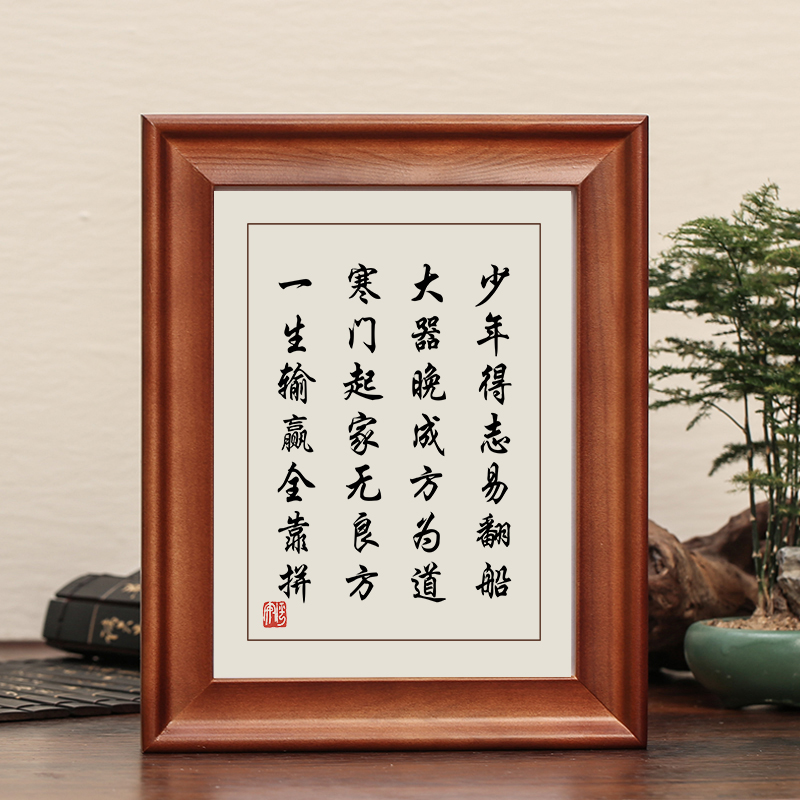 少年得志易翻船
大器晚成方为道
寒门起家无良方
一生输赢全靠拼